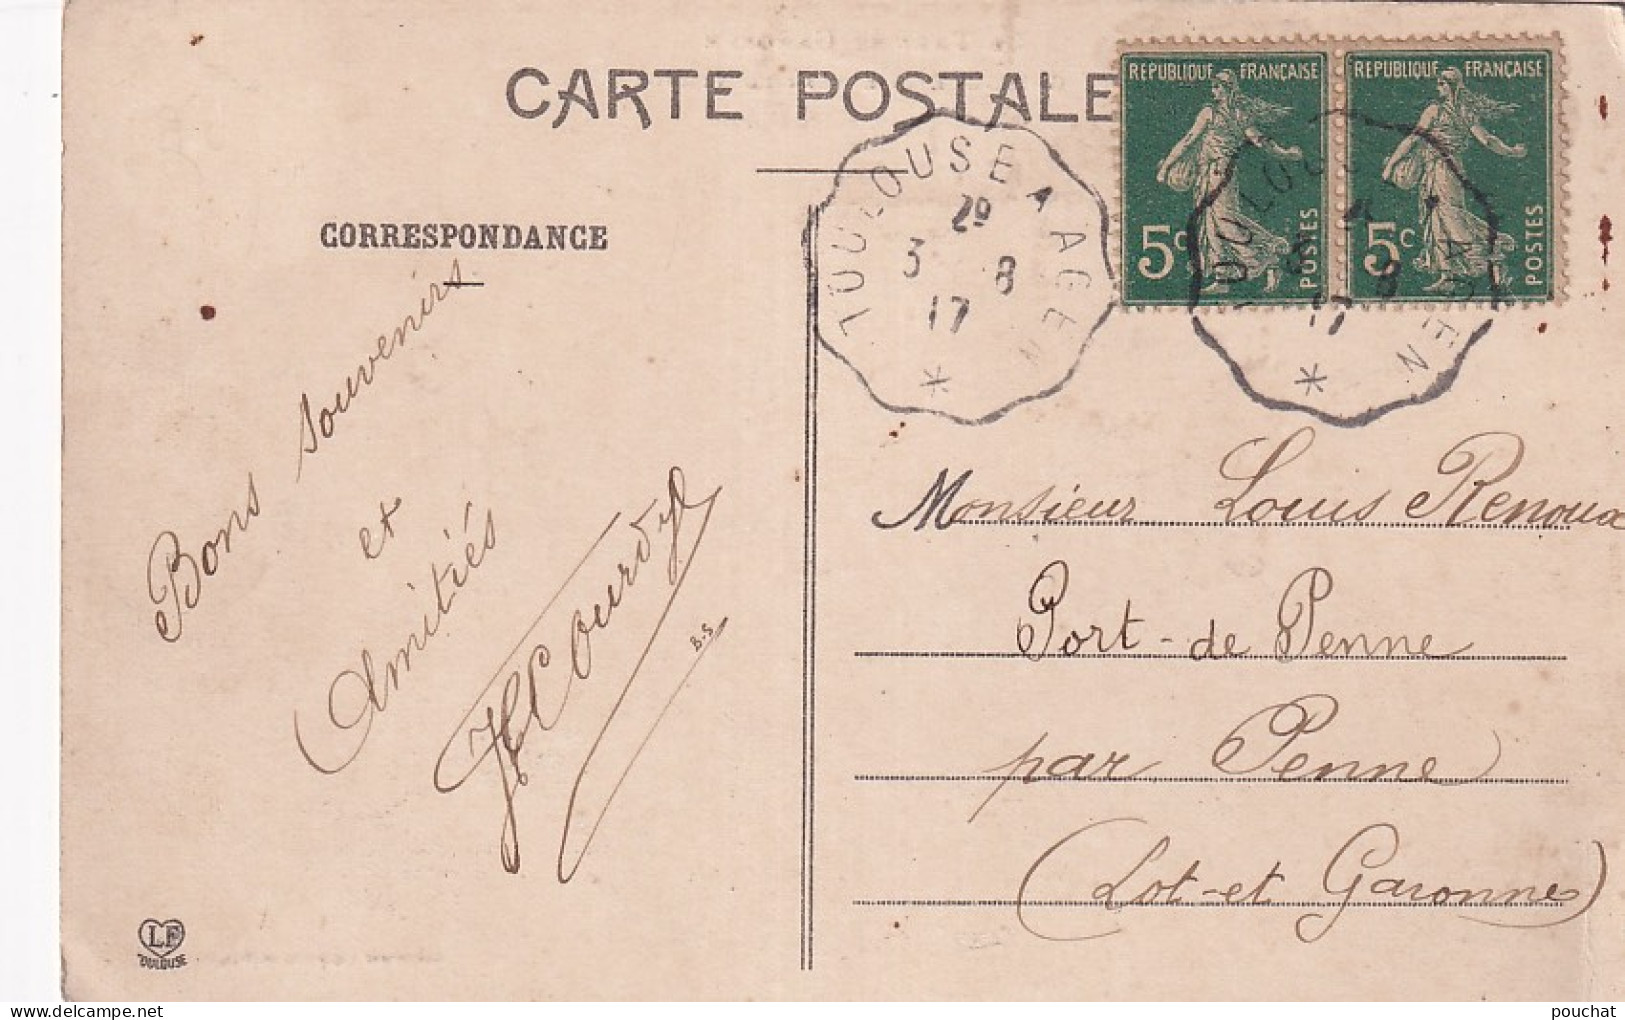 CARTE POSTALE
CORRESPONDANCE
REPUBLIQUE FRANÇAISE
5c
POSTES
REPUBLIQUE FRANÇAISE
5c
POSTES
TOULOUSE A AGEN
29
3 8
17
*
TOULOUSE A AGEN
8
17
*
Bons souvenirs
et
Amitiés
B.S
Monsieur Louis Renoux
Port-de Penne
par Penne
(Lot-et Garonne)
LF
TOULOUSE
pouchat